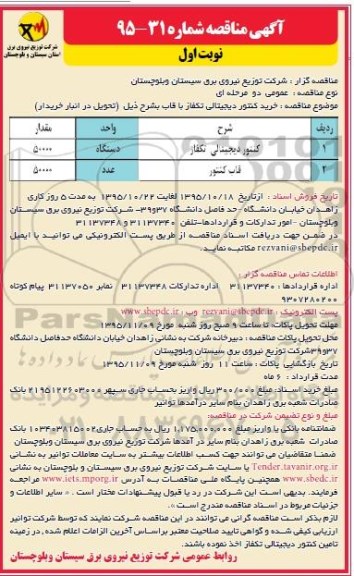 آگهی مناقصه شماره ۳۱-۹۵
نوبت اول
شرکت توزیع نیروی برق
استان سیستان و بلوچستان
مناقصه گزار : شرکت توزیع نیروی برق سیستان وبلوچستان
نوع مناقصه : عمومی دو مرحله ای
موضوع مناقصه : خرید کنتور دیجیتالی تکفاز با قاب بشرح ذیل (تحویل در انبار خریدار)
ردیف شرح واحد مقدار
۱ کنتور دیجیتالی تکفاز دستگاه ۵۰۰۰۰
۲ قاب کنتور عدد ۵۰۰۰۰
تاریخ فروش اسناد : ازتاریخ ۱۳۹۵/۱۰/۱۸ لغایت ۱۳۹۵/۱۰/۲۲ به مدت ۵ روز کاری
زاهدان خیابان دانشگاه - حد فاصل دانشگاه ۳۷و۳۹- شرکت توزیع نیروی برق سیستان
وبلوچستان - امور تدارکات و قراردادها-تلفن ۳۱۱۳۷۳۴۰ و ۳۱۱۳۷۳۴۸
در ضمن جهت دریافت اسناد مناقصه از طریق پست الکترونیکی می توانید با ایمیل
rezvani@shepdc.ir مکاتبه نماید.
اطلاعات تماس مناقصه گزار :
اداره قراردادها : ۳۱۱۳۷۳۴۰ اداره تدارکات ۳۱۱۳۷۳۴۸ نمابر ۳۱۱۳۷۰۵۰ پیام کوتاه
۹۳۰۷۲۸۰۲۰۰
پست الکترونیک : rezvani@shepdc.ir وب : www.shepdc.ir
مهلت تحویل پاکات: تا ساعت ۹ صبح روز شنبه مورخ ۱۳۹۵/۱۱/۰۹
محل تحویل پاکات مناقصه: دبیرخانه شرکت به نشانی زاهدان خیابان دانشگاه حدفاصل دانشگاه
۳۷و۳۹شرکت توزیع نیروی برق سیستان وبلوچستان
تاریخ بازگشایی پاکات : ساعت ۱۱ روز شنبه مورخ ۱۳۹۵/۱۱/۰۹
مدت قرارداد : ۶ ماه
مبلغ خرید اسناد: مبلغ ۳۰۰/۰۰۰ ریال واریز بحساب جاری سپهر بانک
صادرات شعبه برق زاهدان بنام سایر درآمدها توانیر
مبلغ و نوع تضیمن شرکت در مناقصه:
ضمانتنامه بانکی یا واریز مبلغ ۱.۱۷۵.۰۰۰.۰۰۰ ریال به حساب جاری بانک
صادرات شعبه برق زاهدان بنام سایر در آمدها شرکت توزیع نیروی برق سیستان وبلوچستان
ضمنا متقاضیان می توانند جهت کسب اطلاعات بیشتر به سایت معاملات توانیر به نشانی
Tender.tavanir.org.ir یا سایت شرکت توزیع نیروی برق سیستان و بلوچستان به نشانی
www.sbedc.ir همچنین پایگاه ملی مناقصات به آدرس www.iets.mporg.ir مراجعه
فرمایند. بدیهی است این شرکت در رد یا قبول پیشنهادات مختار است . « سایر اطلاعات و
جزئیات مربوط در اسناد مناقصه مندرج است ».
لازم بذکر است مناقصه گرانی می توانند در این مناقصه شرکت نمایند که توسط شرکت توانیر
ارزیابی کیفی شده و گواهی تایید صلاحیت معتبر براساس آخرین الزامات اعلام شده , در زمینه
تامین کنتور دیجیتالی تکفاز اخذ نموده باشند.
روابط عمومی شرکت توزیع نیروی برق سیستان وبلوچستان